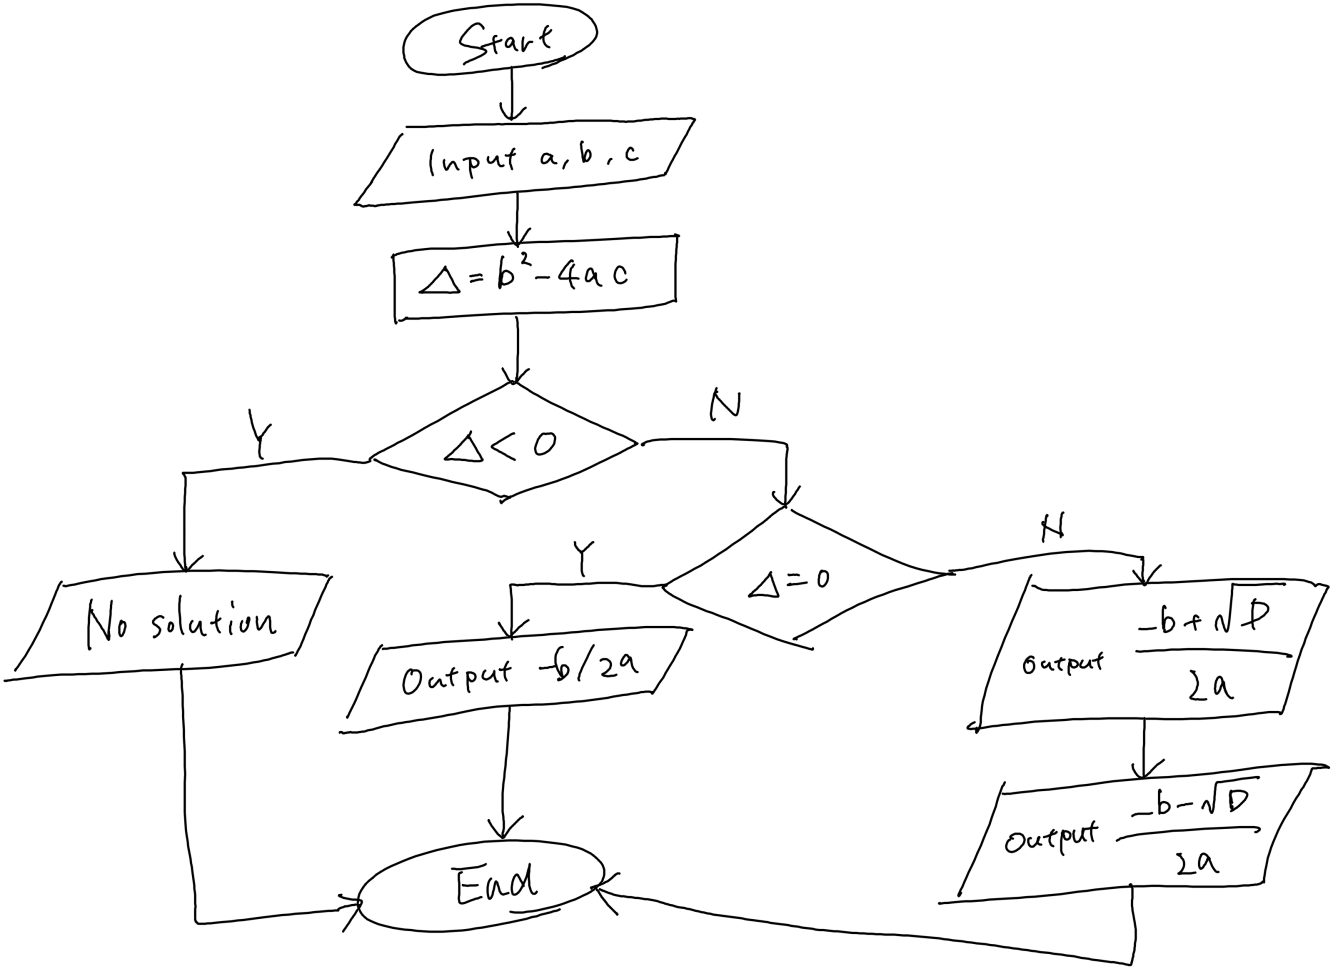 Start
Input a, b, c
△ = b² - 4ac
△ < 0
Y
N
△ = 0
Y
N
No solution
Output -b/2a
Output (-b+√D)/2a
Output (-b-√D)/2a
End